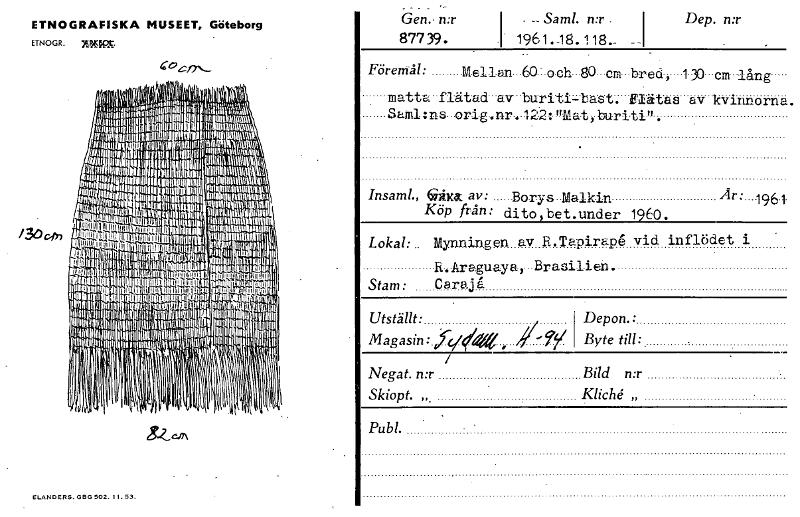 ETNOGRAFISKA MUSEET, Göteborg
ETNOGR.
60 cm
130 cm
82 cm
ELANDERS. GBG 502. 11. 53.
Gen. n:r Saml. n:r Dep. n:r
87739. 1961.18.118.
Föremål: Mellan 60 och 80 cm bred, 130 cm lång
matta flätad av buriti-bast. Flätas av kvinnorna.
Saml:ns orig.nr.122:"Mat,buriti".
Insaml., Gåva av: Borys Malkin År: 1961
Köp från: dito,bet.under 1960.
Lokal: Mynningen av R.Tapirapé vid inflödet i
R.Araguaya, Brasilien.
Stam: Carajá
Utställt: Depon.:
Magasin: Sydam. H-94 Byte till:
Negat. n:r Bild n:r
Skiopt. „ Kliché „
Publ.